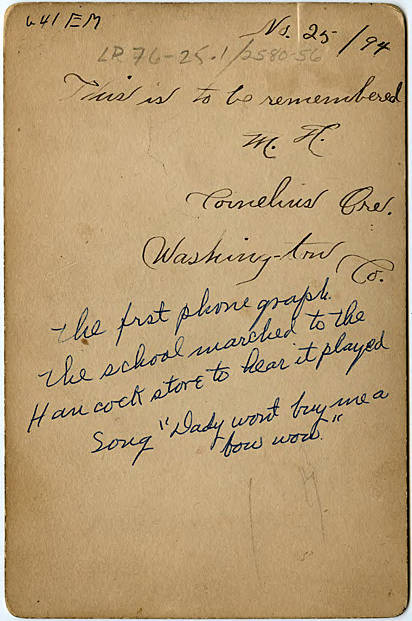 641 EM
Nv. 25/94
LR 76-25.1/2580-56
This is to be remembered
M. H.
Cornelius Ore.
Washington Co.
The frst phone graph.
The school marched to the
Hancock store to hear it played
Song "Dady wont buy me a
bow wow."